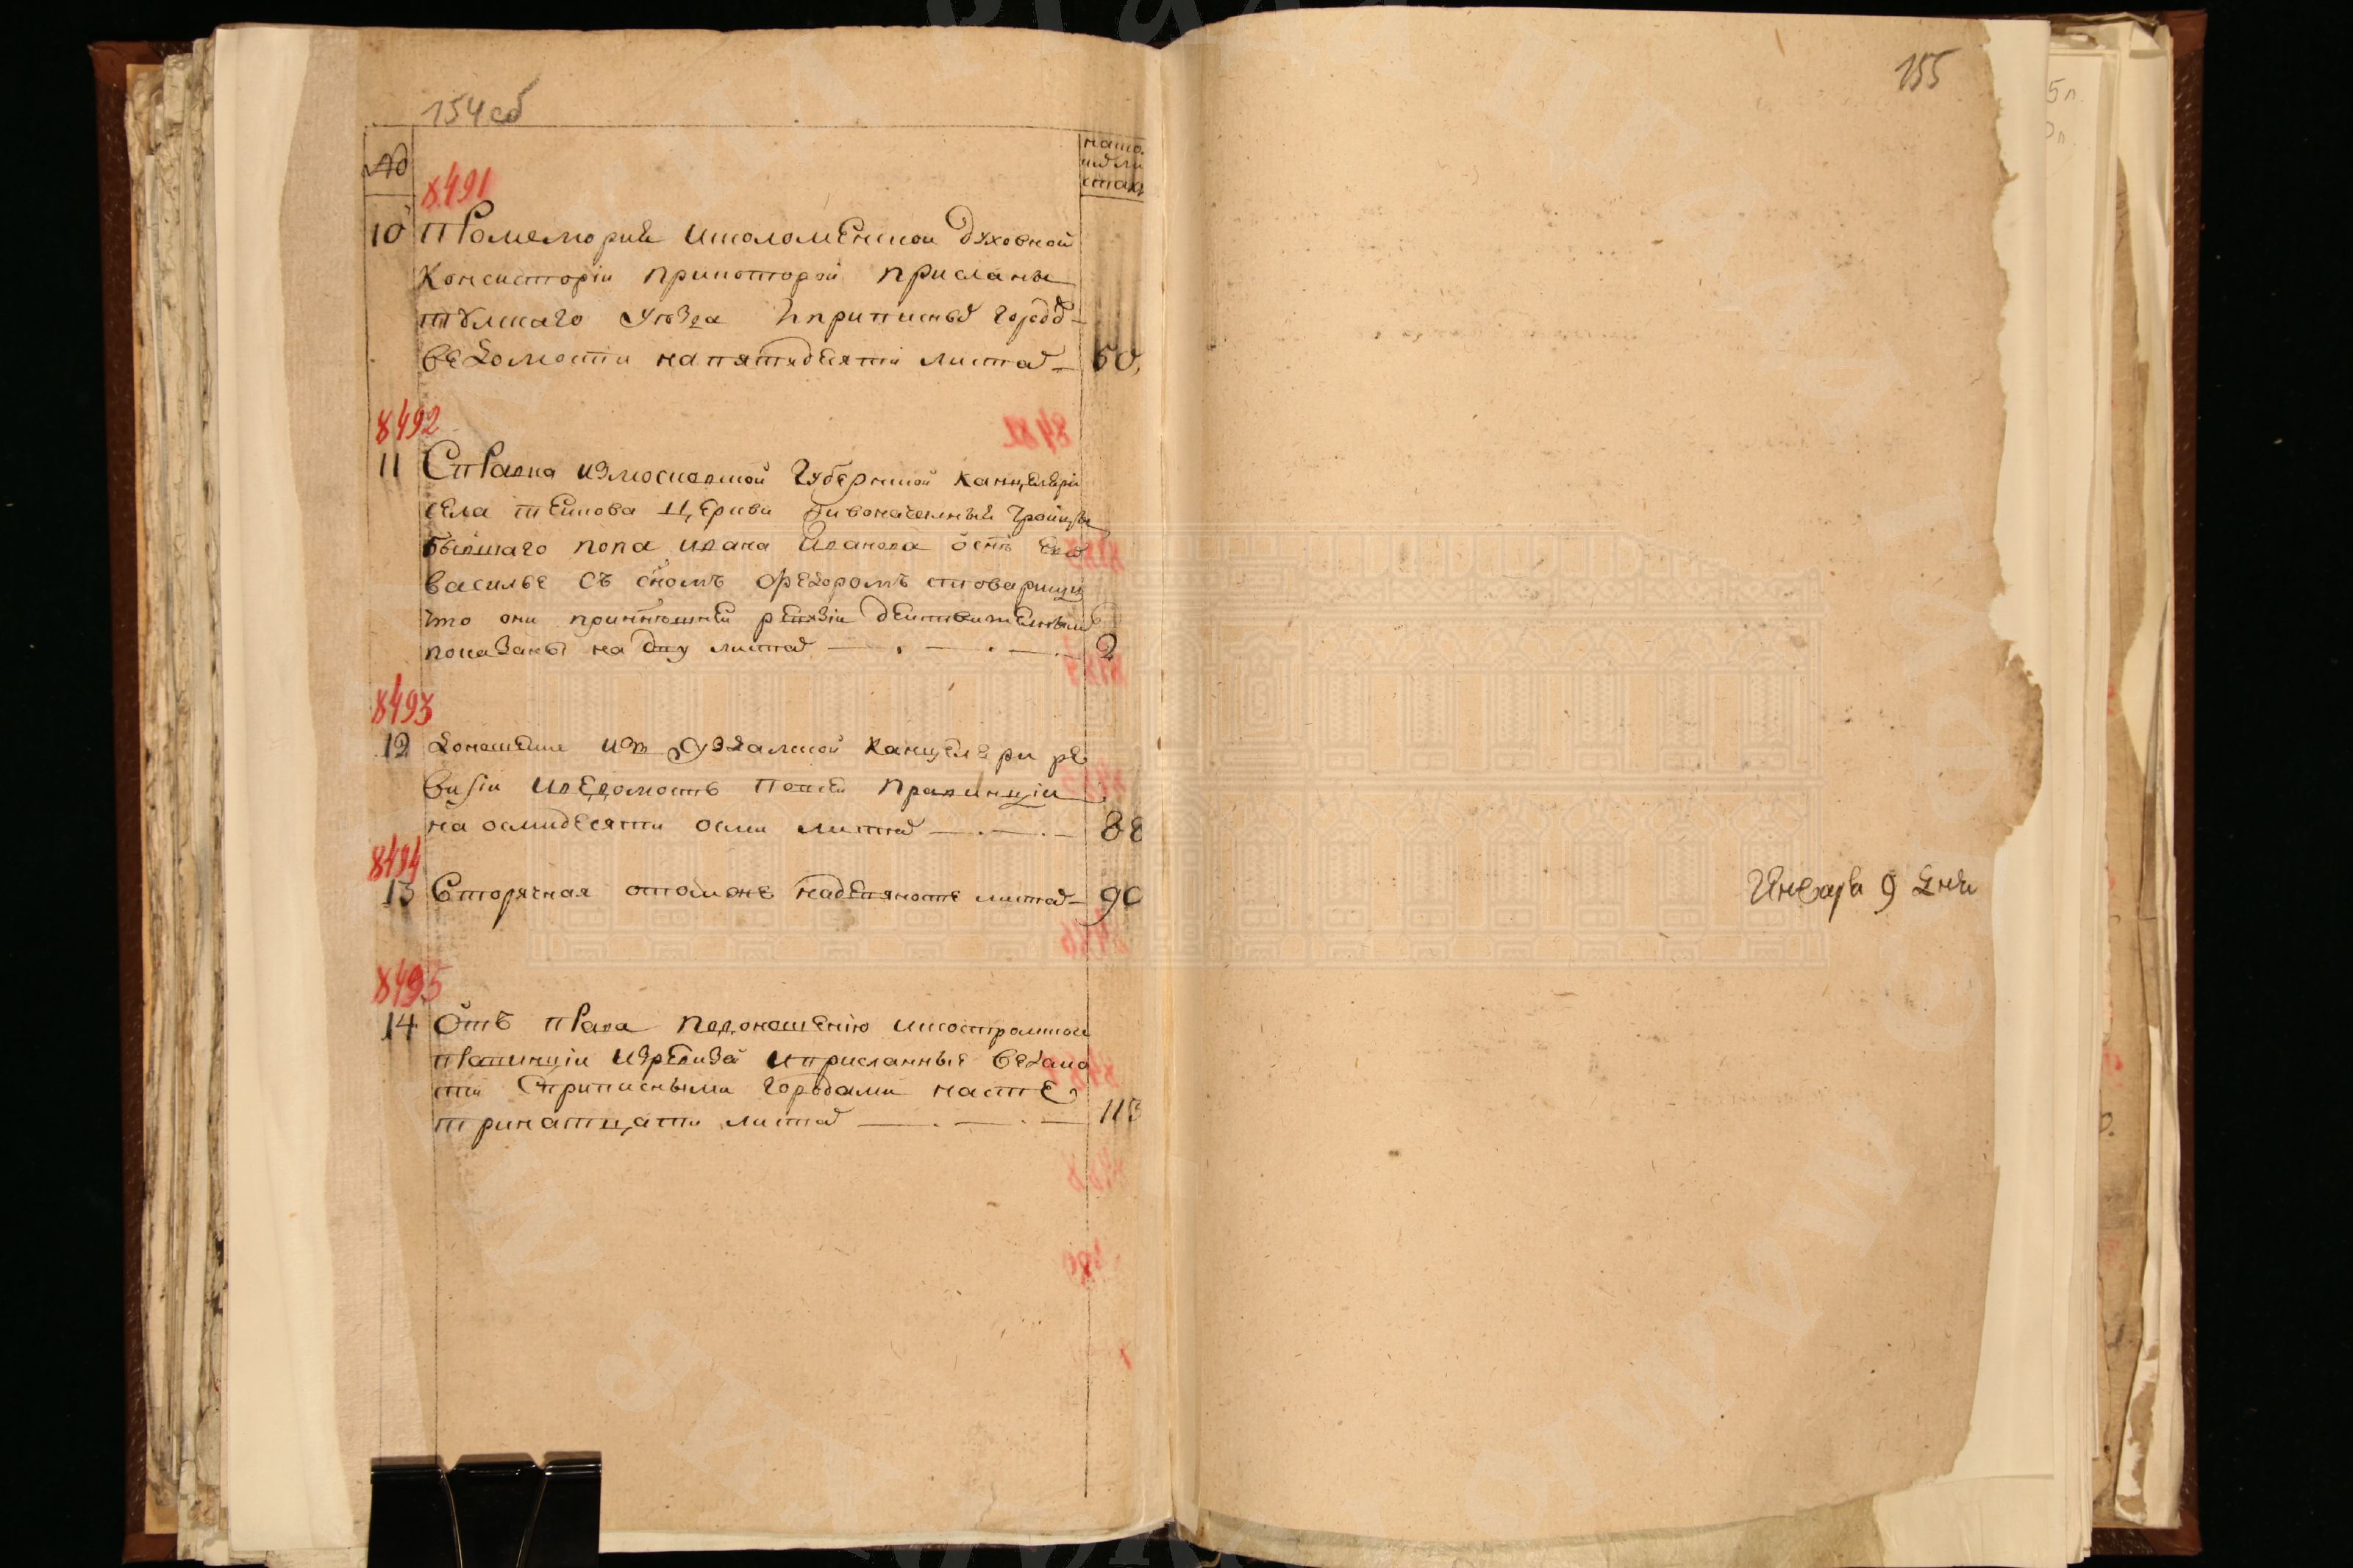 154 об
№
на ско
ихъ ли
стахъ
8491
10 Промемория исколоменской духовной
консистории прикоторой присланы
тулскаго уезда иприписныхъ городовъ
ведомости напятидесяти листахъ 50
8492
11 Справка измосковской губернской канцелярии
села церкви Живоначалныя Троицы
бывшаго попа ивана Иванова
василье съ сномъ федоромъ стоварищи
что они ревизии действителныи
показаны на дву листахъ 2
8493
12 доношение изъ Суздалской канцелярии ре
визии иведомость потой правинции
на осмидесяти осми листахъ 88
8494
13 Вторичная отомже надевяносте листахъ 90
8495
14 Отъ права подоношению искостромской
правинции изревизей иприсланные ведамо
сти Сприписными городами насте
тринатцати листахъ 113
155
Генваря 9 дня